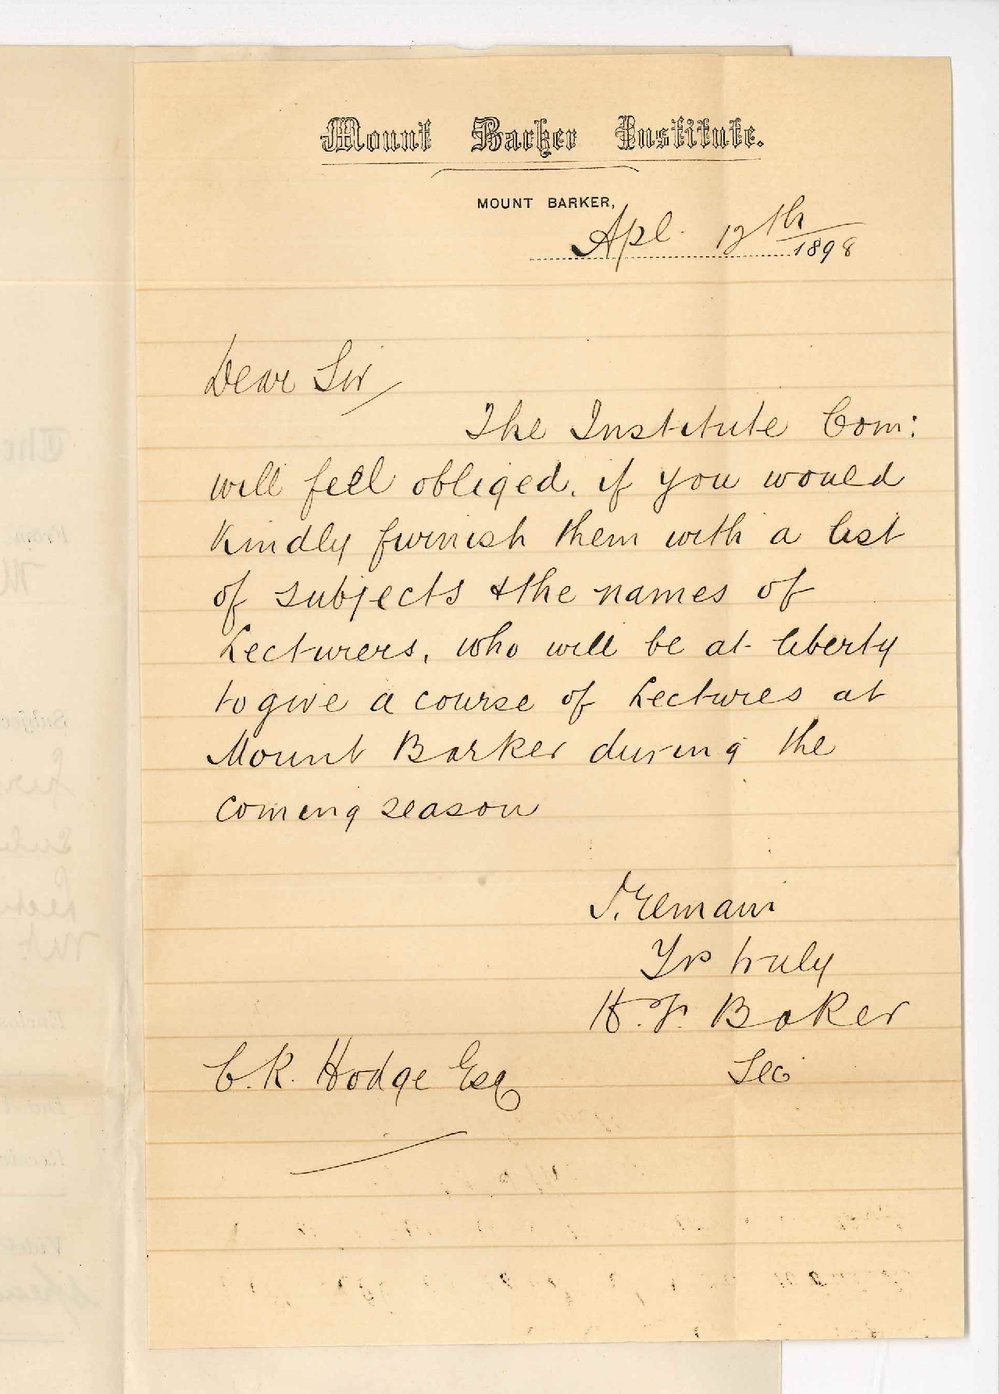 Mount Barker Institute.
MOUNT BARKER,
Apl. 12th 1898
Dear Sir
The Institute Com:
will feel obliged, if you would
kindly furnish them with a list
of subjects & the names of
Lecturers, who will be at liberty
to give a course of Lectures at
Mount Barker during the
coming season
I remain
Yrs truly
H. F. Baker
Sec
C. R. Hodge Esq